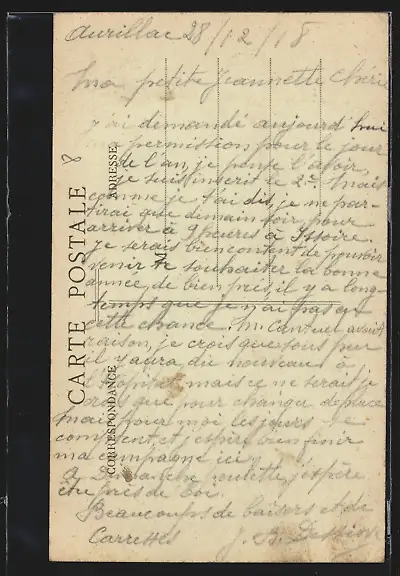 Aurillac 28/12/18
Ma petite Jeannette Chérie
j'ai demandé aujourd'hui
permission pour le jour
de l'an, je pense l'avoir,
je suis inscrit le 2e. Mais
comme je t'ai dis, je ne par-
tirai que demain soir, pour
arriver à 9 heures à Issoire
je serais bien content de pouvoir
venir te souhaiter la bonne
année, de bien près, il y a long-
temps que je n'ai pas eu
cette chance. Mr avait
raison, je crois que sous peu
il y aura du nouveau à
l'hôpital, mais ce ne serait je
crois que pour changer de place
mais pour moi les jours se
comptent, et j'espère bien finir
ma campagne ici
à Dimanche poulette, j'espère
être près de toi.
Beaucoups de baisers et de
Caresses J. B.
CARTE POSTALE
CORRESPONDANCE
ADRESSE
M